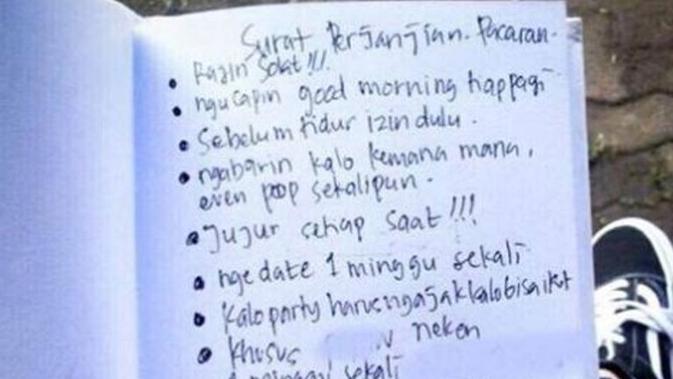 Surat Perjanjian Pacaran.
• Rajin Solat!!!
• ngucapin good morning tiap pagi
• Sebelum tidur izin dulu.
• ngabarin kalo kemana mana,
even poop sekalipun.
• Jujur setiap saat!!!
• ngedate 1 minggu sekali
• kalo party harus ngajak kalo bisa ikut
• khusus neken
sekali